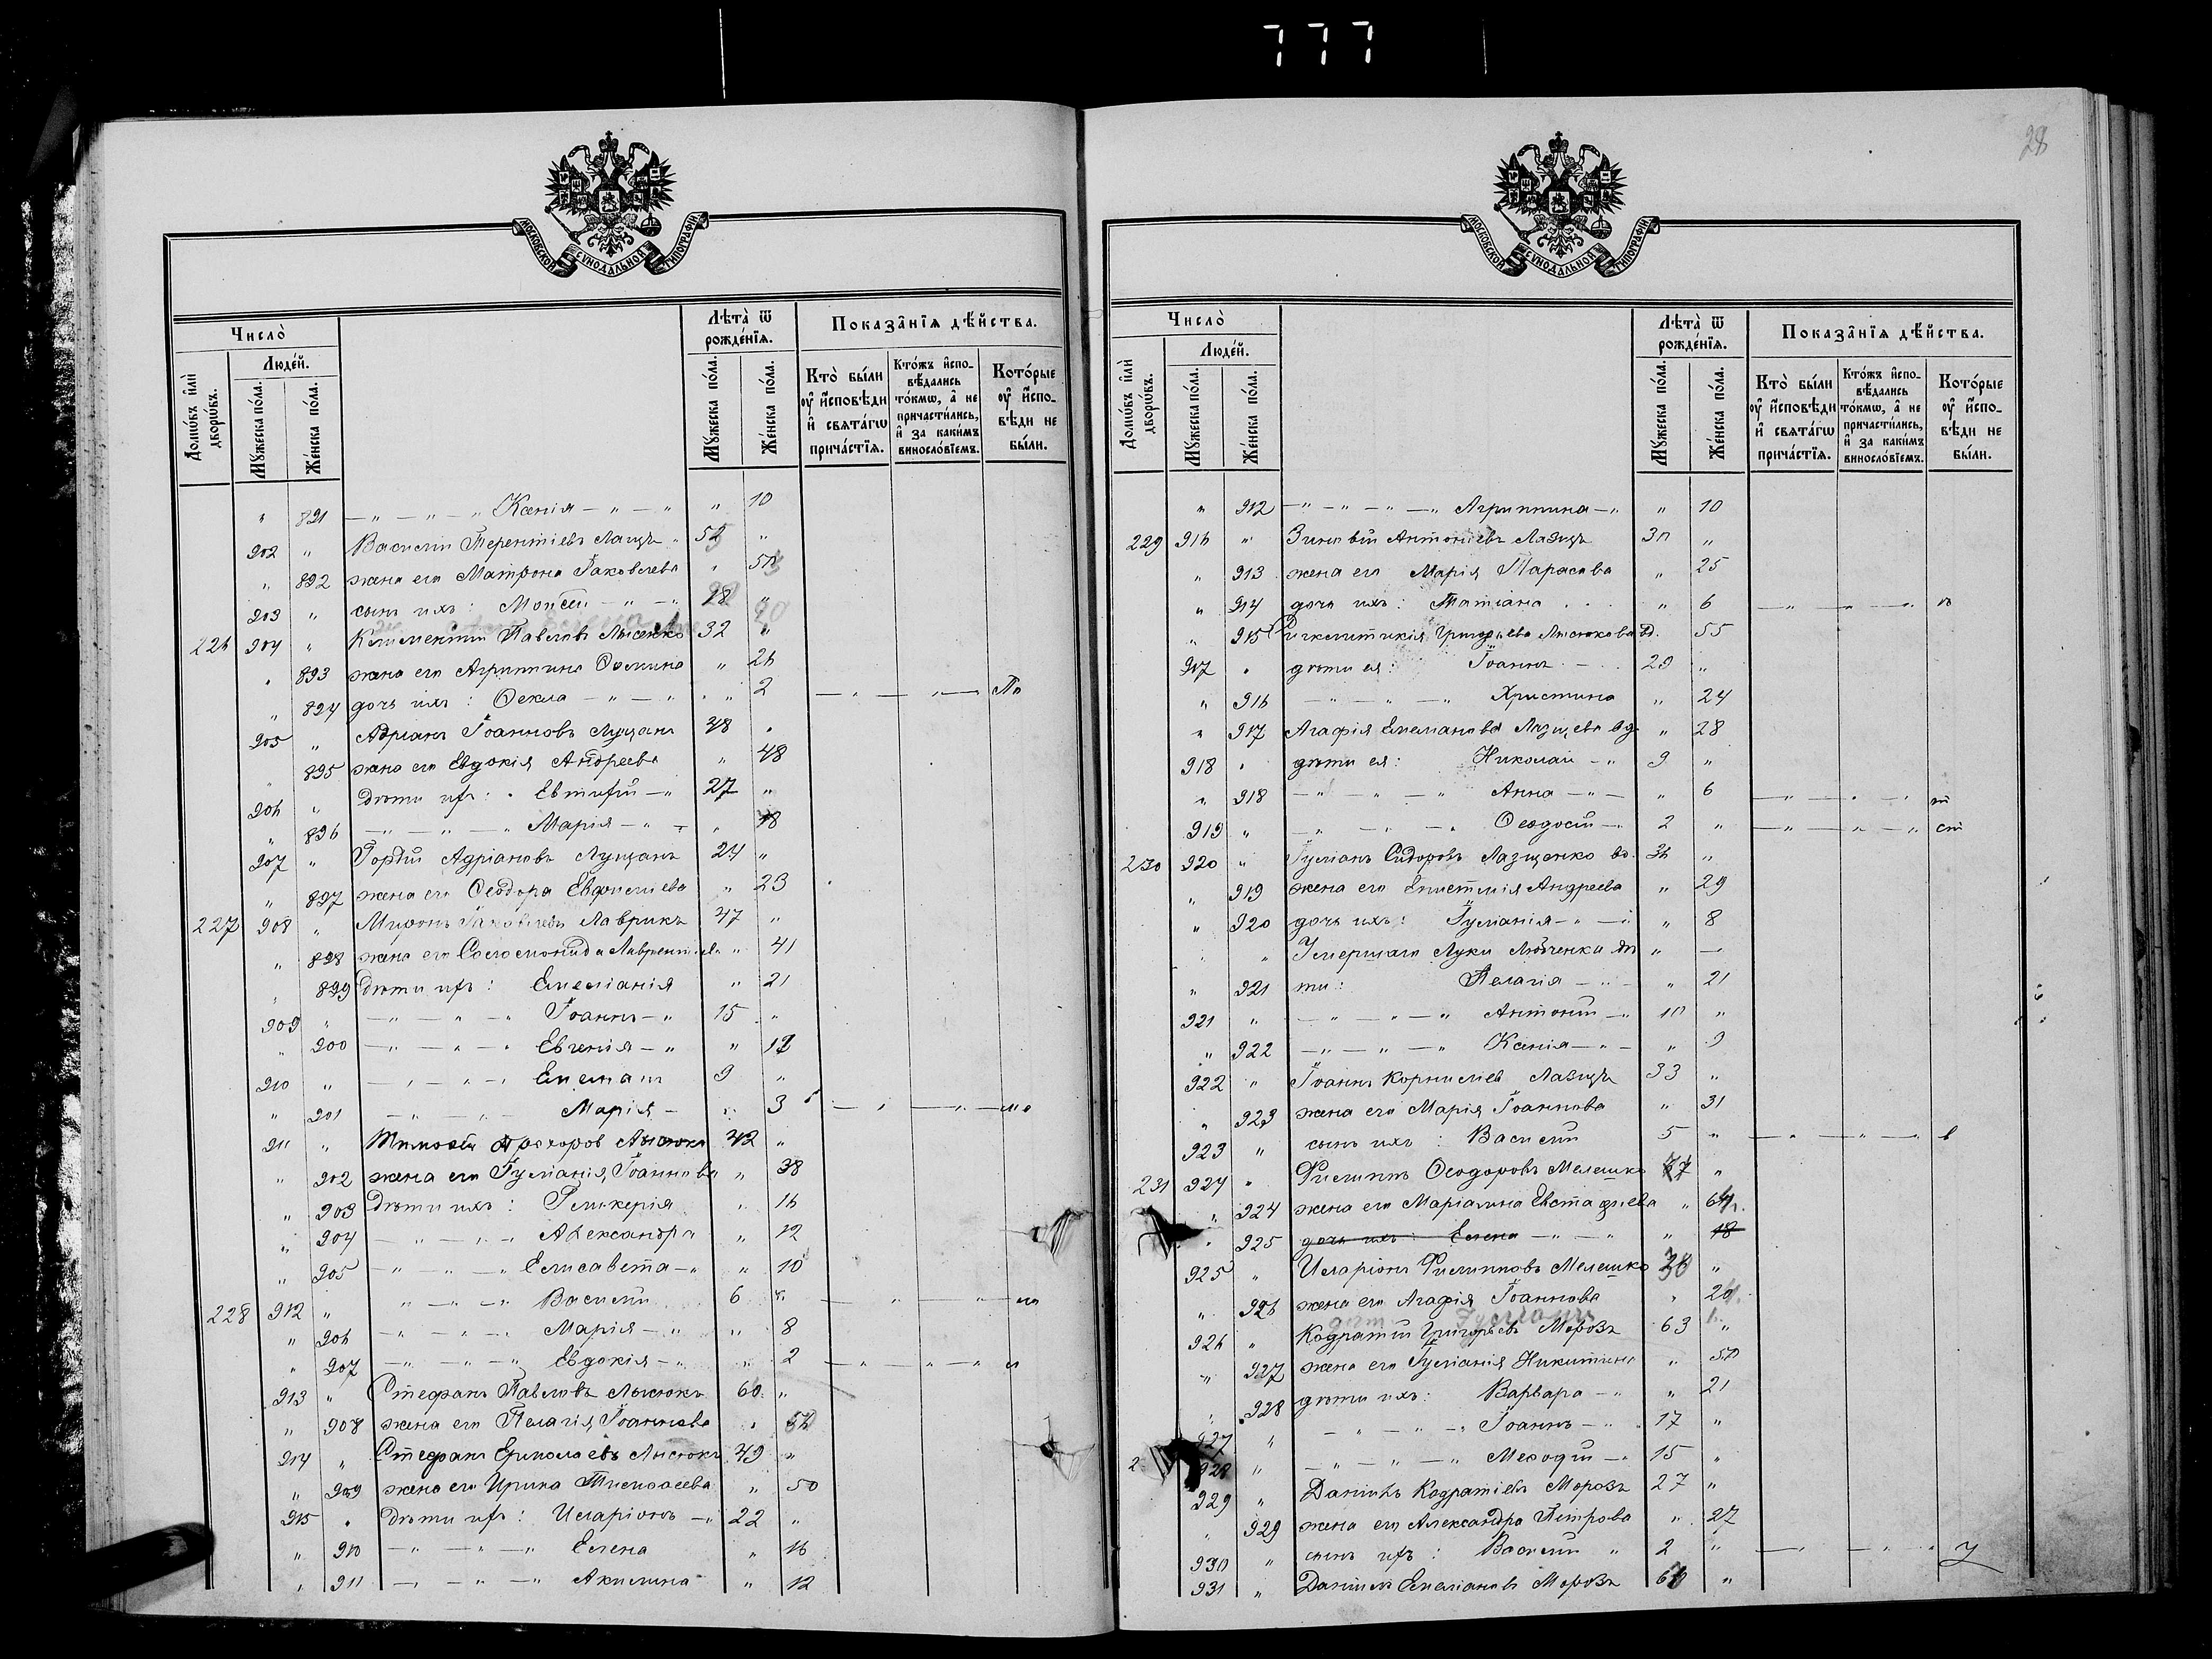 777
28
МОСКОВСКОЙ СѴНОДАЛЬНОЙ ТИПОГРАФІИ
Число̀
Лѣта̀ ѿ рождéнїѧ.
Показа̂нїѧ дѣ́йства.
Домѡ́въ и҆лѝ дворѡ́въ.
Люде́й.
Мꙋ́жеска по́ла.
Же́нска по́ла.
Мꙋ́жеска по́ла.
Же́нска по́ла.
Кто̀ бы́ли оу҆ и҆́сповѣди и҆ свѧта́гѡ прича́стїѧ.
Кто́жъ и҆спо-вѣ́дались то́кмѡ, а҆ не причасти́лись, и҆ за каки́мъ винослóвїемъ.
Кото́рые оу҆ и҆́спо-вѣди не бы́ли.
" 891 — " — " — " Ксенія — " — " " 10
902 " Василій Терентіевъ Лазицъ 52 "
" 892 жена его Матрона Іаковлева "
903 " сынъ ихъ: Моисей — " — "
904 " Климентій Павловъ Лысенко 32 "
" 893 жена его Агриппина Ѳомина " 26
" 894 дочь ихъ: Ѳекла — " — " " 2 — " — " —
905 " Адріанъ Іоанновъ Лущанъ 48 "
" 895 жена его Евдокія Андреева " 48
906 " Дѣти ихъ: Евтифій — " 27 "
" 896 — " — " — " Марія — " — " 18
907 " Гордій Адріановъ Лущанъ 24 "
" 897 жена его Ѳеодора Евфиміева " 23
227 908 " Миронъ Іаковлевъ Лаврикъ 47 "
" 898 жена его Соломонида Лаврентіева " 41
" 899 Дѣти ихъ: Емеліанія " 21
909 " — " — " — " Іоаннъ — " 15 "
" 900 — " — " — " Евгенія — " "
910 " — " — " — " Емеліанъ 9 "
" 901 — " — " — Марія — " 3 — " — " —
911 " Тимофей Прохоров Лысюкъ 42 "
" 902 жена его Іуліанія Іоаннова " 38
" 903 Дѣти ихъ: Гликерія " 16
" 904 — " — " — " Александра " 12
" 905 — " — " — " Елисавета — " " 10
228 912 " " — " — " Василій 6 " — " — " —
" 906 — " — " — Марія — " " 8
" 907 — " — " — " Евдокія — " " 2 — " — " — "
913 " Стефанъ Павловъ Лысюкъ 60 "
" 908 жена его Пелагія Іоаннова "
914 " Стефанъ Ермолаевъ Лысюкъ 49 "
" 909 жена его Ирина Тимофеева " 50
915 " Дѣти ихъ: Иларіонъ — " 22 "
" 910 — " — " — " Елена " 16
" 911 — " — " — " Акилина " 12
МОСКОВСКОЙ СѴНОДАЛЬНОЙ ТИПОГРАФІИ
Число̀
Лѣта̀ ѿ рождéнїѧ.
Показа̂нїѧ дѣ́йства.
Домѡ́въ и҆лѝ дворѡ́въ.
Люде́й.
Мꙋ́жеска по́ла.
Же́нска по́ла.
Мꙋ́жеска по́ла.
Же́нска по́ла.
Кто̀ бы́ли оу҆ и҆́сповѣди и҆ свѧта́гѡ прича́стїѧ.
Кто́жъ и҆спо-вѣ́дались то́кмѡ, а҆ не причасти́лись, и҆ за каки́мъ винослóвїемъ.
Кото́рые оу҆ и҆́спо-вѣди не бы́ли.
" 912 — " — " — " — " Агриппина — " " 10
229 916 " Зиновій Антоніевъ Лазицъ 30 "
" 913 жена его Марія Тарасова " 25
" 914 дочь ихъ: Татіана " 6 — " — " — "
" 915 Григорьева Лысюкова вд. 55
917 " дѣти ея: Іоаннъ 20 "
" 916 — " — " — " Христина " 24
" 917 Агафія Емеліанова Лазицева вд. " 28
918 " дѣти ея: Николай — " 9 "
" 918 — " — " — " Анна — " — " 6 — " — " — "
919 " — " — " — " Ѳеодосій — " 2 " — " — " — "
230 920 " Іуліанъ Сидоровъ Лазиценко 36 "
" 919 жена его Епистимія Андреева " 29
" 920 дочь ихъ: Іуліанія — " — " " 8
" " Умершаго Луки Любченки дѣ " —
" 921 ти: Пелагія — " — " 21
921 " — " — " — " Антоній — " 10 "
" 922 — " — " — " Ксенія — " — " 9
922 " Іоаннъ Корниліев Лазицъ 33 "
" 923 жена его Марія Іоаннова " 31
923 " сынъ ихъ: Василій 5 " — " — " — "
231 924 " Филиппъ Ѳеодоровъ Мелешко "
" 924 жена его Маріамна Евстафіева "
" 925 дочь ихъ: Елена — " — " " 18
925 " Иларіонъ Филипповъ Мелешко "
" 926 жена его Агафія Іоаннова "
926 " Кодратій Григорьевъ Морозъ 63 "
" 927 жена его Іуліанія Никитина " 50
" 928 дѣти ихъ: Варвара — " " 21
927 " — " — " — " Іоаннъ — " 17 "
928 " — " — " — " Меѳодій — " 15 "
929 " Даніилъ Кодратіевъ Морозъ 27 "
" 929 жена его Александра Петрова " 27
930 " сынъ ихъ: Василій " 2 " — " — " "
931 " Даніилъ Емеліановъ Морозъ "